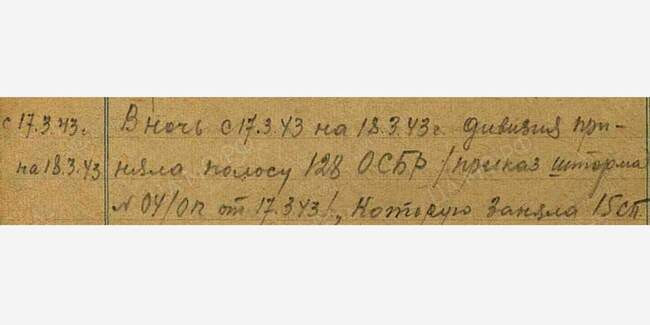 с 17.3.43г.
на 18.3.43
В ночь с 17.3.43 на 18.3.43г. дивизия при-
няла полосу 128 ОСБР /приказ шторма
№ 04/оп от 17.3 43/, которую заняла 15 СП